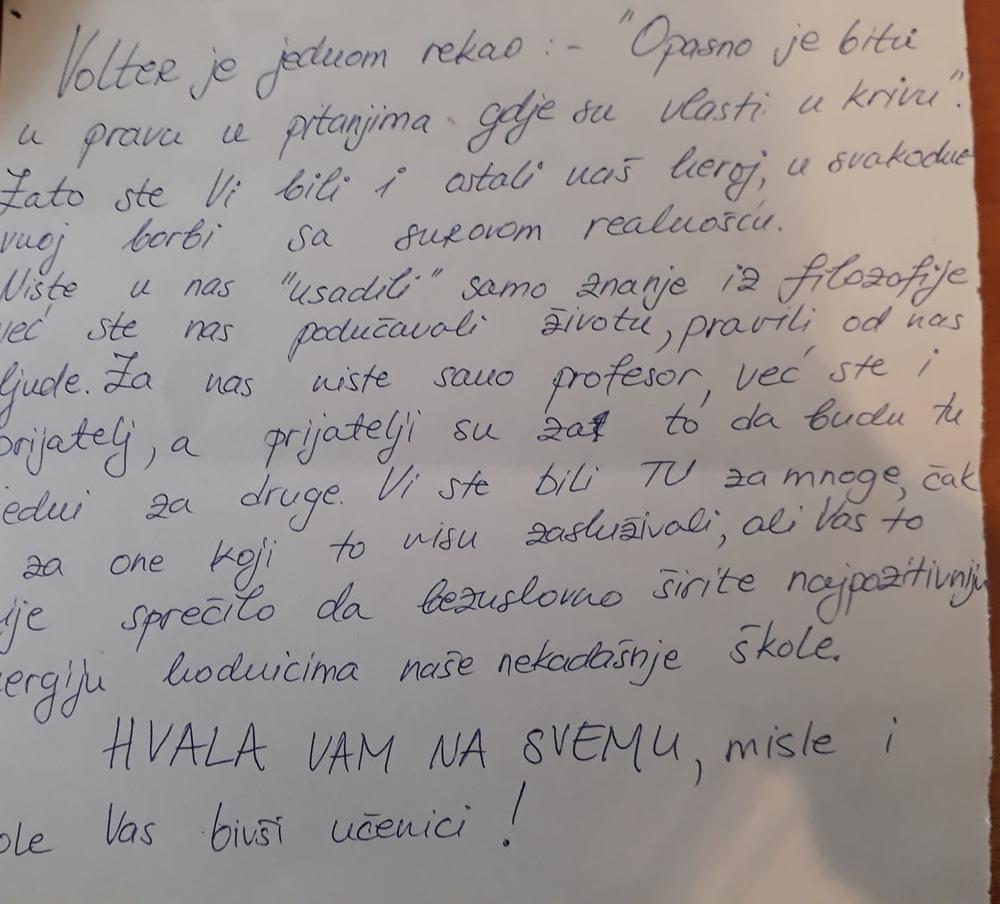 Volter je jednom rekao :- "Opasno je biti
u pravu u pitanjima gdje su vlasti u krivu".
Zato ste Vi bili i ostali naš heroj, u svakodne
vnoj borbi sa surovom realnošću.
Niste u nas "usadili" samo znanje iz filozofije
već ste nas podučavali životu, pravili od nas
ljude. Za nas niste samo profesor, već ste i
prijatelj, a prijatelji su zat to da budu tu
jedni za druge. Vi ste bili TU za mnoge, čak
za one koji to nisu zasluživali, ali Vas to
nije sprečilo da bezuslovno širite najpozitivniju
energiju hodnicima naše nekadašnje škole.
HVALA VAM NA SVEMU, misle i
vole Vas bivši učenici!